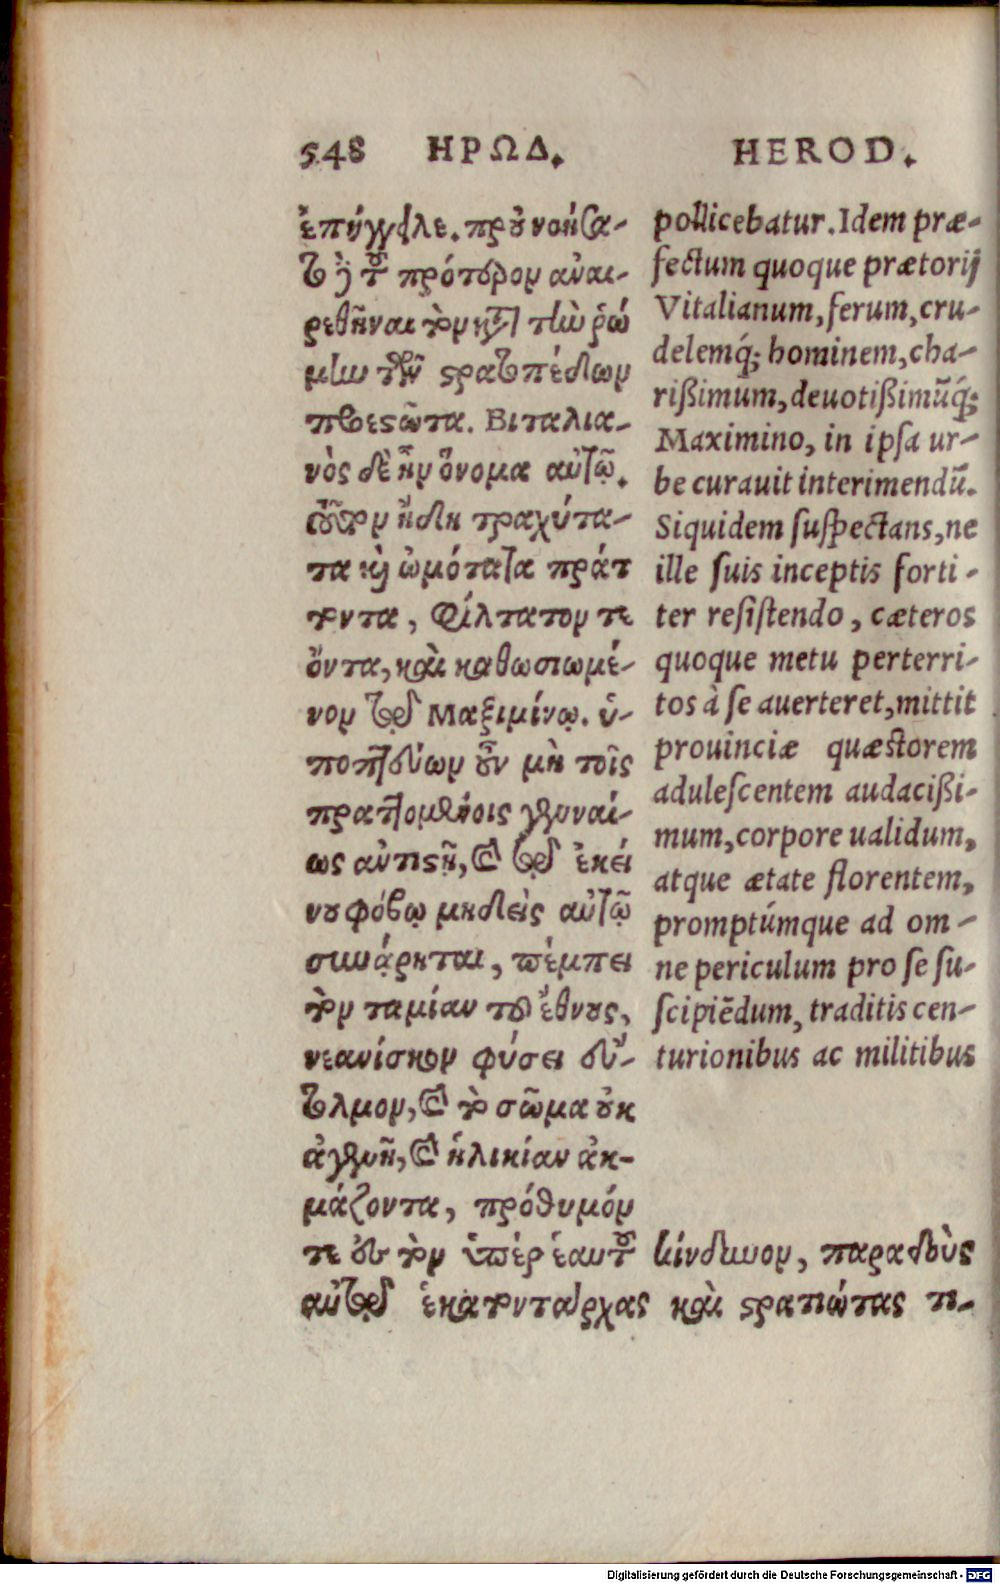 548 ΗΡΩΔ. HEROD.
ἐπήγγειλε. πρὐνοήσα-
το δὲ τοῦ πρότερον ἀναι-
ρεθῆναι τὸν κατὰ τὴν ῥώ
μην τῶν στρατοπέδων
προεστῶτα. Βιταλια-
νὸς δὲ ἦν ὄνομα αὐτῷ.
τοῦτον ᾔδη τραχύτα-
τα καὶ ὠμότατα πράτ
τοντα, φίλτατον τε
ὄντα, καὶ καθωσιωμέ-
νον τῷ Μαξιμίνῳ. ὑ-
ποπτεύων οὖν μὴ τοῖς
πραττομένοις γενναί-
ως ἀντιστῇ, καὶ τῷ ἐκεί
νου φόβῳ μηδεὶς αὐτῷ
συνάρηται, πέμπει
τὸν ταμίαν τοῦ ἔθνους,
νεανίσκον φύσει εὔ-
τολμον, καὶ τὸ σῶμα οὐκ
ἀγενῆ, καὶ ἡλικίαν ἀκ-
μάζοντα, πρόθυμόν
τε εἰς τὸν ὑπὲρ ἑαυτοῦ κίνδυνον, παραδοὺς
αὐτῷ ἑκατοντάρχας καὶ στρατιώτας τι-
pollicebatur. Idem præ-
fectum quoque prætorij
Vitalianum, ferum, cru-
delemq́; hominem, cha-
rißimum, deuotißimũq́;
Maximino, in ipsa ur-
be curauit interimendũ.
Siquidem suspectans, ne
ille suis inceptis forti-
ter resistendo, cæteros
quoque metu perterri-
tos à se auerteret, mittit
prouinciæ quæstorem
adulescentem audacißi-
mum, corpore ualidum,
atque ætate florentem,
promptúmque ad om-
ne periculum pro se su-
scipiẽdum, traditis cen-
turionibus ac militibus
Digitalisierung gefördert durch die Deutsche Forschungsgemeinschaft - DFG